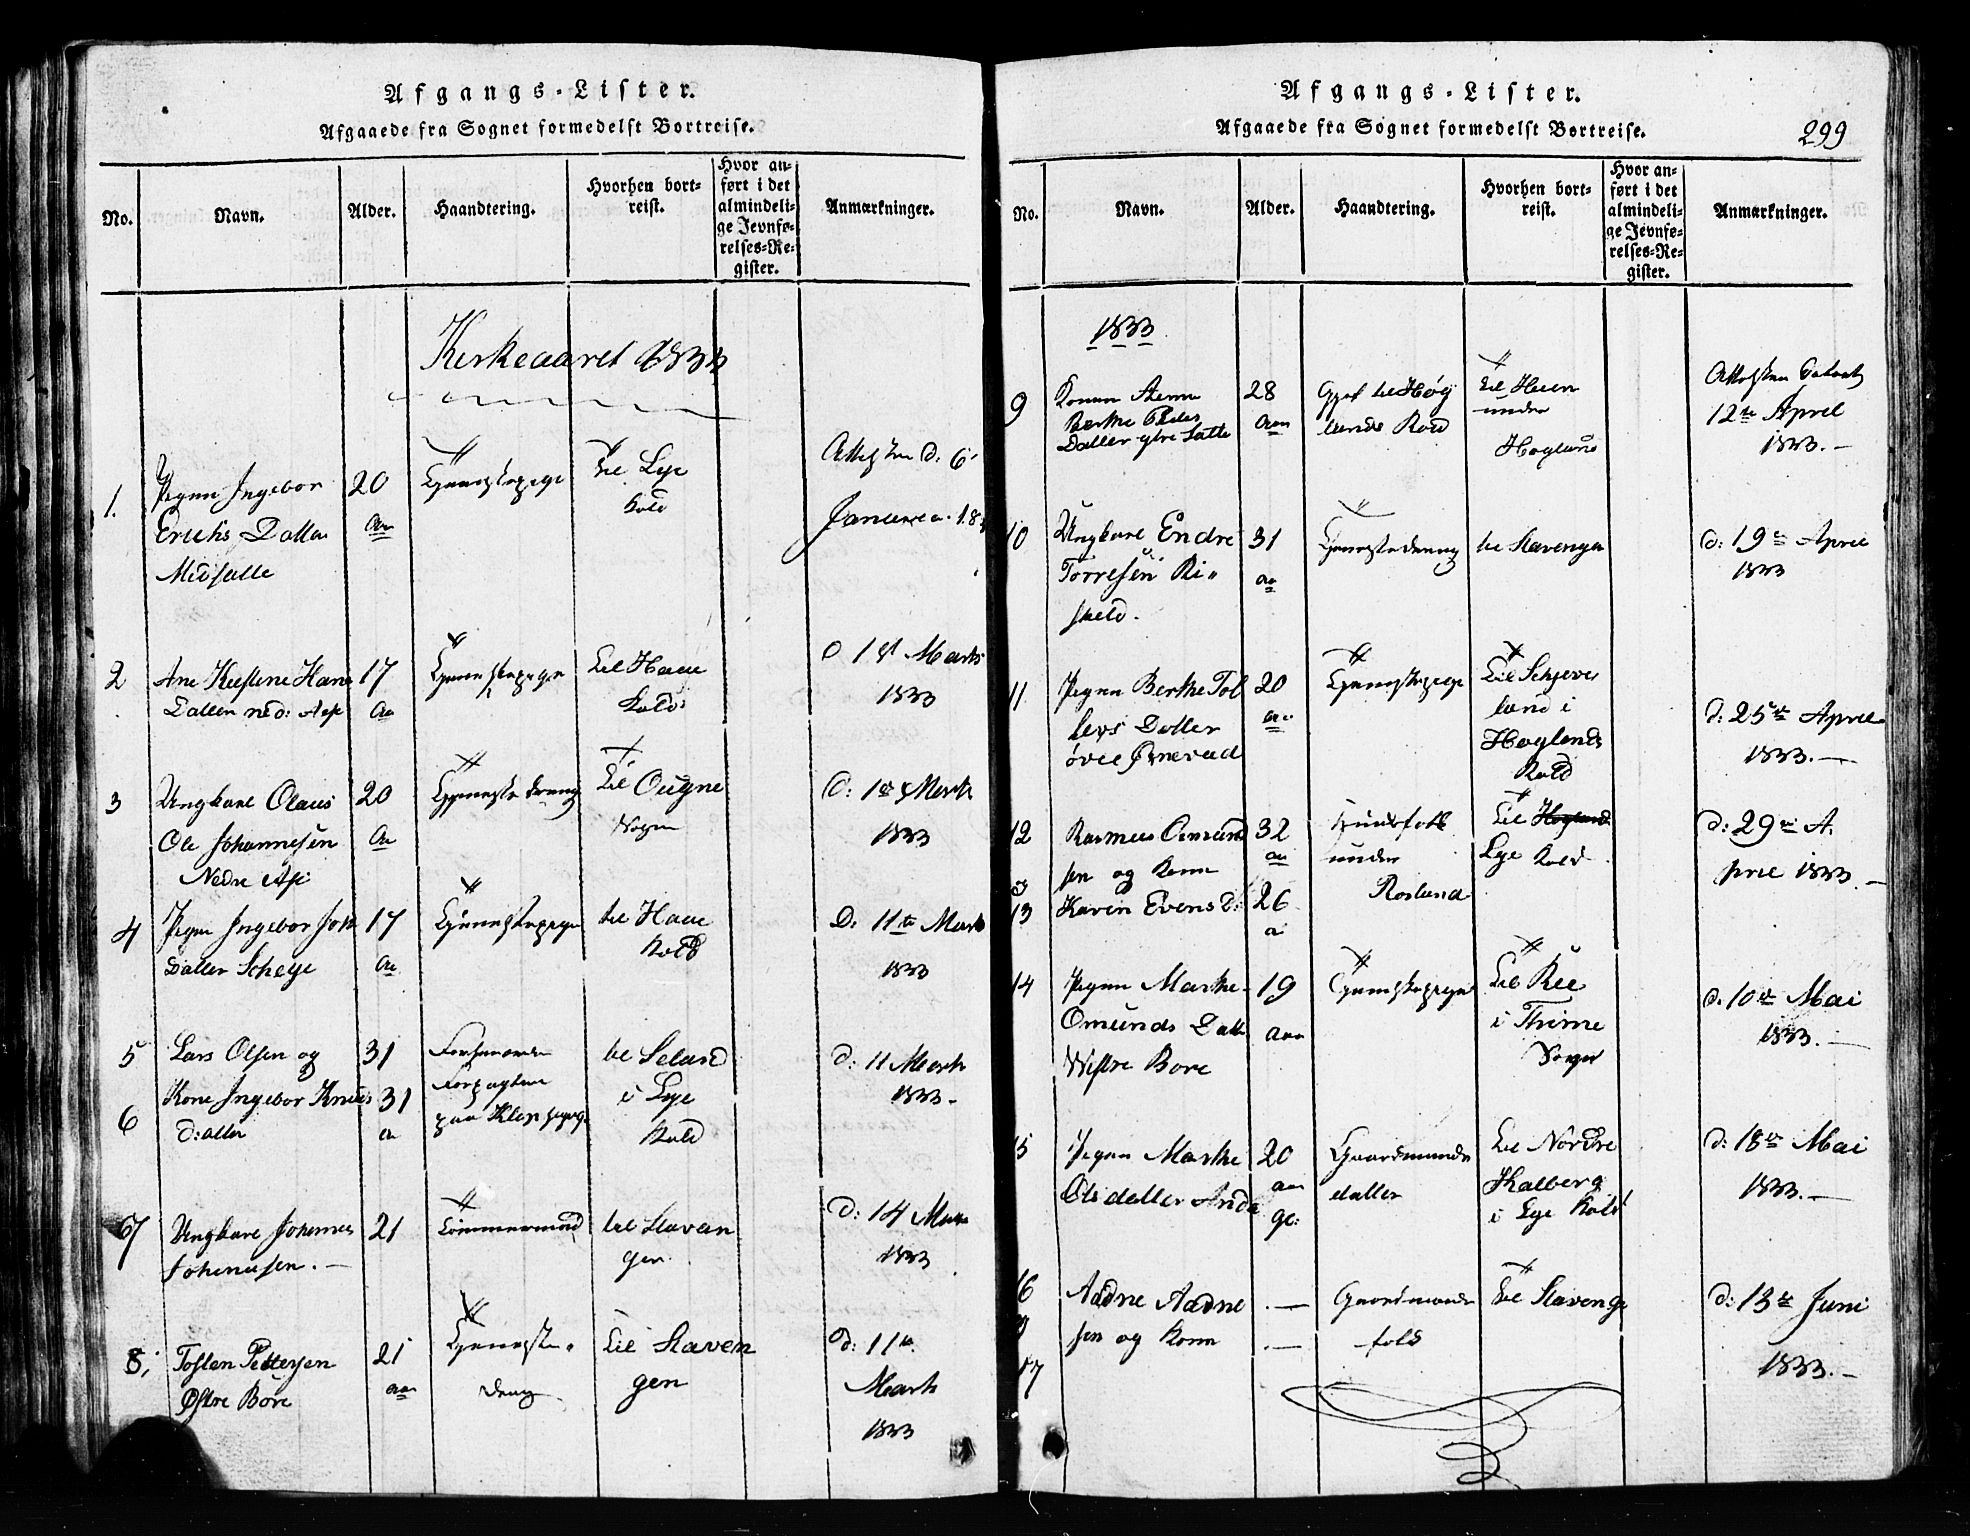 Afgangs-Lister.
Afgaaede fra Sognet formedelst Bortreise.
No.
Navn.
Alder.
Haandtering.
Hvorhen bort-
reist.
Hvor an-
ført i det
almindeli-
ge Jevnfø-
relses-Re-
gister.
Anmærkninger.
Kirkeaaret 1833
1.
Pigen Ingebor
Erichs Datter
Midsatte
20
Aar
Tjenestepige
til Lye
Kald
Attesten d: 6
Januar
2
Ane Kistine Hans
Datter ned: Ase
17
Aar
Tjenestepige
til Haae
Kald
1st Marts
1833
3
Ungkarl Olaus
Ole Johannesen
Nedre Ase
20
Aar
Tjenestedreng
til Ougne
Sogn
d: 1st Marts
1833
4
Pigen Ingebor Joh
Datter Scheye
17
Aar
Tjenestepige
til Haae
Kald
D: 11te Marts
1833
5
Lars Olsen og
6
Kone Ingebor Knuds
datter
31
31
Forpagter
paa Klep
til Seland
i Lye
Kald
d: 11 Marts
1833-
7
Ungkarl Johannes
Johannesen. -
21
Tømmermand
til Stavan
ger
d: 14 Marts
1833
8
Tosten Pettersen
Østre Bore
21
aar
Tjeneste
dreng
til Staven
gen
d: 11te
Marts
1833
Afgangs-Lister.
Afgaaede fra Sognet formedelst Bortreise.
299
No.
Navn.
Alder.
Haandtering.
Hvorhen bort-
reist.
Hvor an-
ført i det
almindeli-
ge Jevnfø-
relses-Re-
gister.
Anmærkninger.
1833
9
Konen
Berthe Peders
Datter ytre Satte
28
Aar
Gift til Høy
lands Kald
til
under
Hogland
Attesten Dateret
12te April
1833.-
10
Ungkarl Endre
Torresen Ri-
skeld.
31
aar
Tjenestedreng
til Stavenger
d: 19de April
1833
11
Pigen Berthe Tol
levs Datter
øvre Ørnevad
20
aar
Tjenestepige
til Schjeve
land i
Høglands
Kald
d: 25de April
1833.-
12
Rasmus Omund
sen og Kone
13
Karen Evens D:
32
aar
26
a
Huusfolk
under
Rosland
til Hogland
Lye Kald
d: 29de A
pril 1833.-
14
Pigen Marthe
Omunds Datt
Westre Bore
19
Aar
Tjenestepige
til Ree
i Thime
Sogn
d. 10de Mai
1833.-
15
Pigen Marthe
Olsdatter Anda
20
aar
Gaardmands
datter
til Nordre
Kalberg
i Lye Kald
d: 18de Mai
1833.-
16
Aadne Aadne
sen og Kone
17
Gaardmands
folk
til Stavenge
d: 13de Juni
1833.-